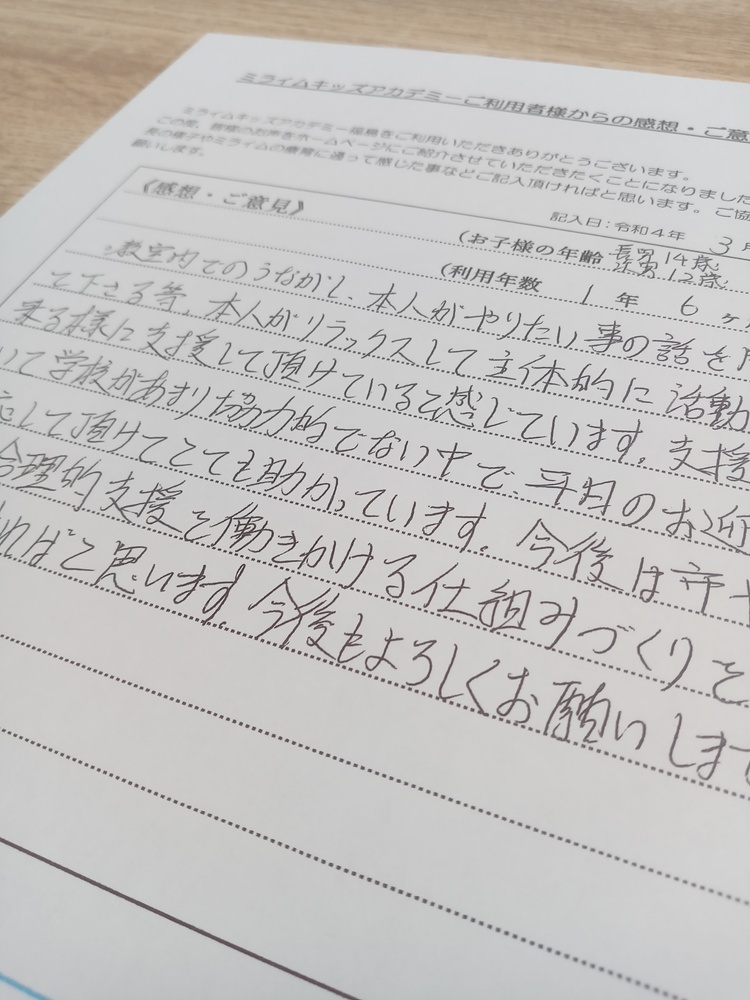 ミライムキッズアカデミーご利用者様からの感想・ご意
ミライムキッズアカデミー福島をご利用いただきありがとうございます。
この度、皆様のお声をホームページにご紹介させていただきたくことになりました
児の様子やミライムの療育に通って感じた事などご記入頂ければと思います。ご協
願いします。
記入日:令和4年 3月
《感想・ご意見》
(お子様の年齢 長男14歳、次男12歳、
(利用年数 1年 6ヶ
・教室内でのうながし、本人がやりたい事の話を
て下さる等、本人がリラックスして主体的に活動
来る様に支援して頂けていると感じています。支援
いて学校があまり協力的でない中で、平日のお迎
応して頂けてとても助かっています。今後は市や
合理的支援を働きかける仕組みづくりを
ればと思います。今後もよろしくお願いします